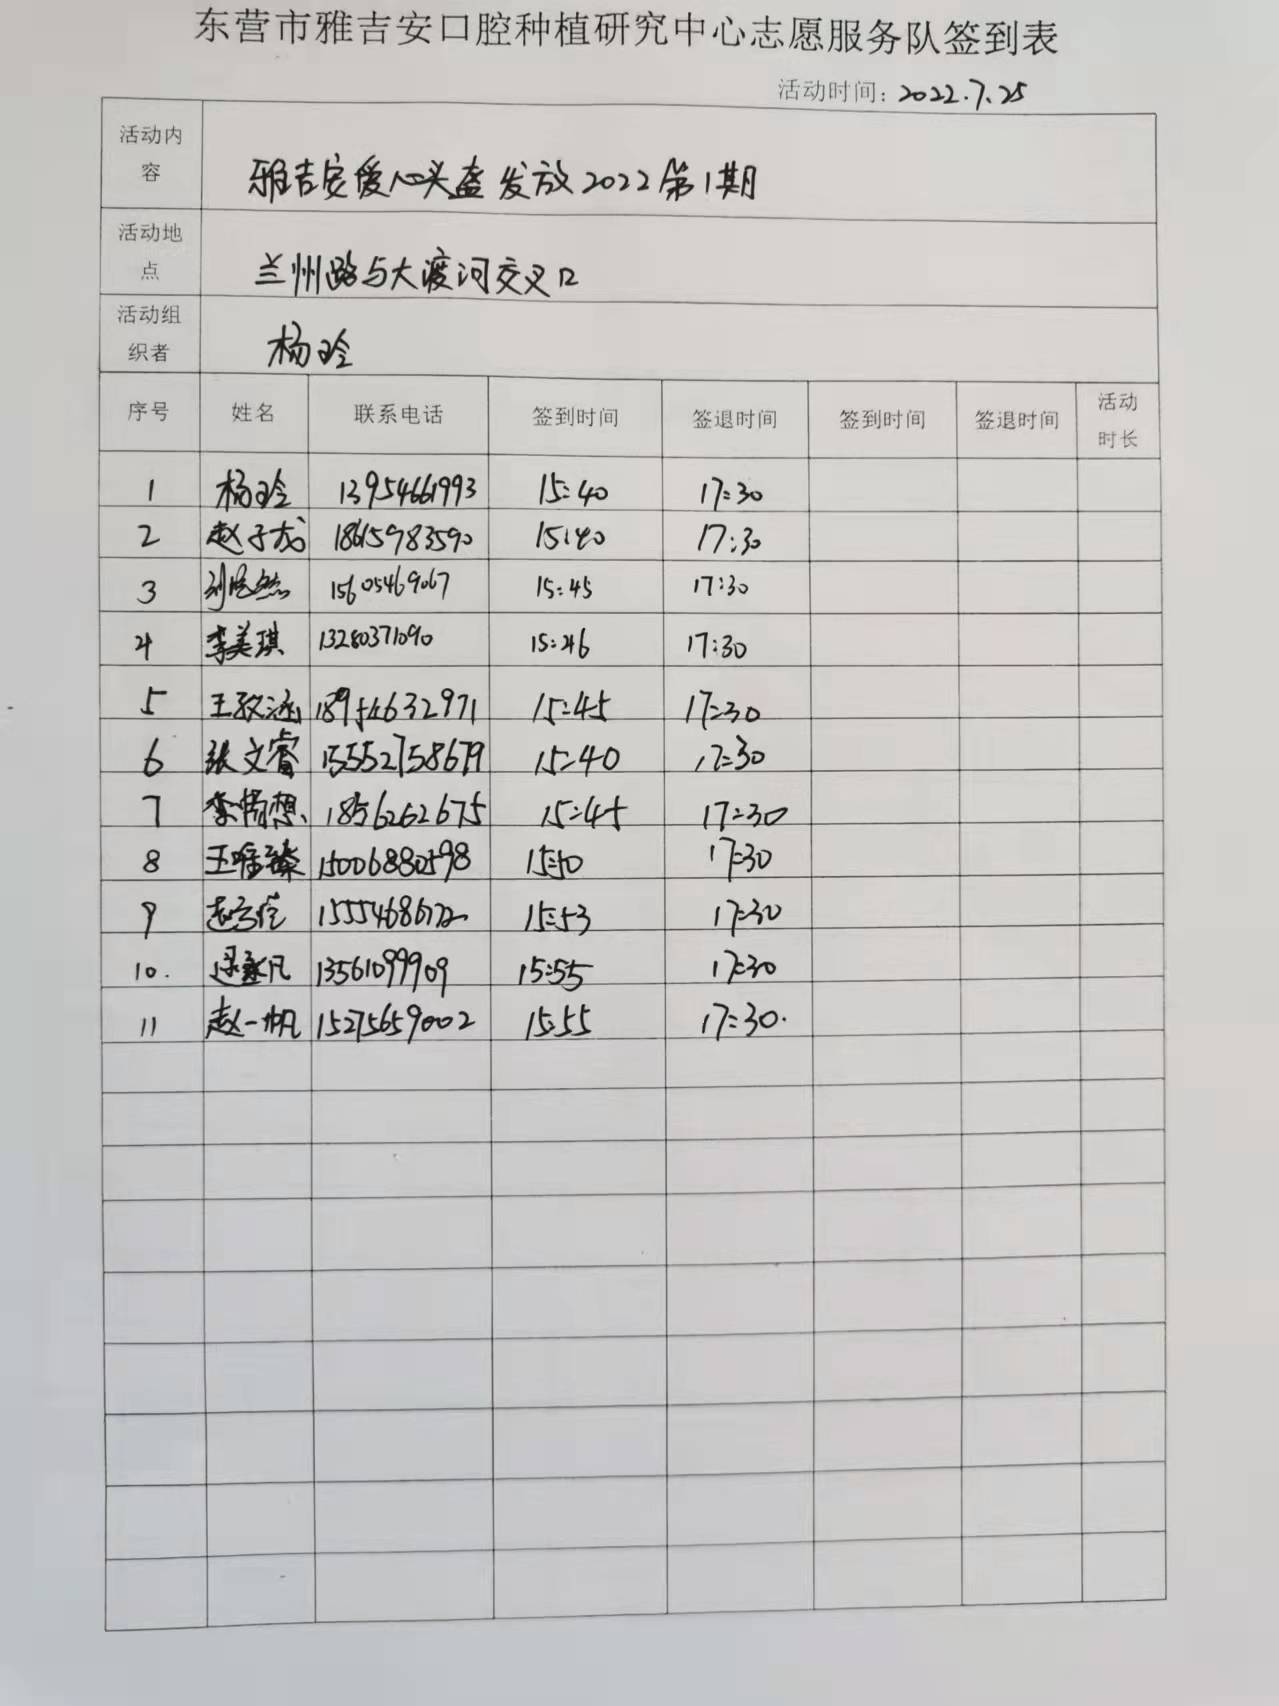 东营市雅吉安口腔种植研究中心志愿服务队签到表
活动时间: 2022.7.25
活动内容 雅吉安爱心头盔发放2022第1期
活动地点 兰州路与大渡河交叉口
活动组织者 杨玲
序号 姓名 联系电话 签到时间 签退时间 签到时间 签退时间 活动时长
1 杨玲 13954661993 15:40 17:30
2 赵子龙 18615983590 15:40 17:30
3 15605469067 15:45 17:30
4 李美琪 13280371090 15:46 17:30
5 王孜涵 18954632971 15:45 17:30
6 张文睿 15552758679 15:40 17:30
7 李情想 1856262675 15:45 17:30
8 15006880598 15:50 17:30
9 15:53 17:30
10. 13561099909 15:55 17:30
11 赵一帆 15275659002 15:55 17:30.